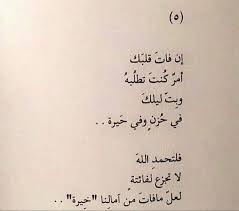 (٥)
إن فاتَ قلبَك
أمرٌ كُنتَ تطلُبهُ
وبِتّ ليلكَ
في حُزنٍ وفي حَيرة ..
فلتحمدِ اللهَ
لا تجزع لفائتةٍ
لعلّ مافاتَ من آمالِنا "خِيرة" ..